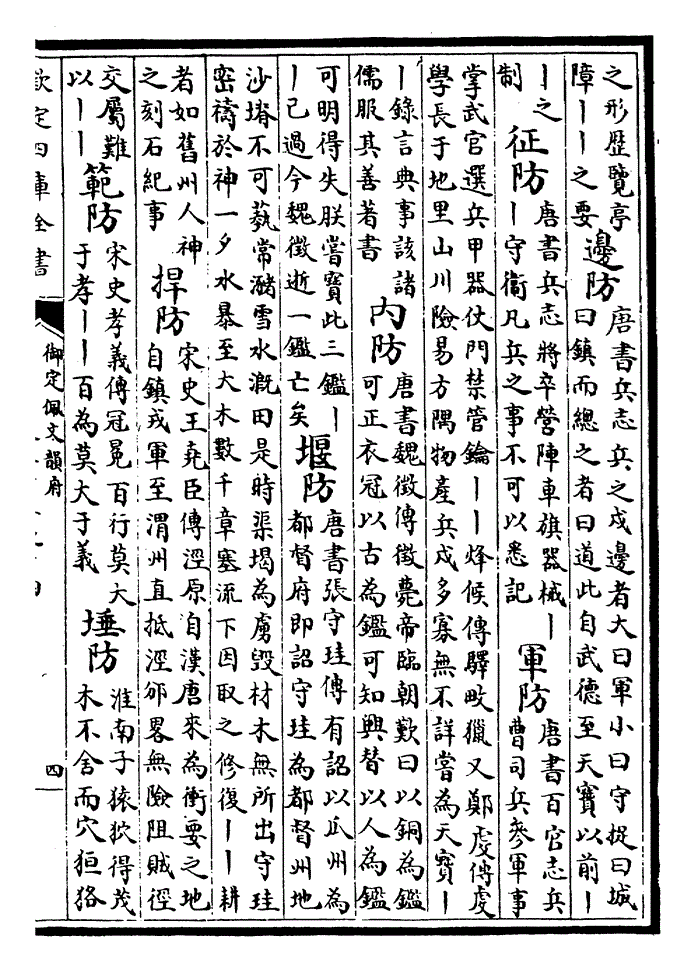 之形歴覽亭
障丨丨之要
邊防
唐書兵志兵之戍邊者大曰軍小曰守捉曰城
曰鎮而總之者曰道此自武德至天寶以前丨
丨之
制
征防
唐書兵志將卒營陣車旗器械丨
丨守衞凡兵之事不可以悉記
軍防
唐書百官志兵
曹司兵參軍事
掌武官選兵甲器仗門禁管鑰丨丨烽候傳驛畋獵又鄭虔傳虔
學長于地里山川險易方隅物產兵戍多寡無不詳嘗為天寶丨
丨錄言典事該諸
儒服其善著書
内防
唐書魏徵傳徵薨帝臨朝歎曰以銅為鑑
可正衣冠以古為鑑可知興替以人為鑑
可明得失朕嘗寶此三鑑丨
丨己過今魏徵逝一鑑亡矣
堰防
唐書張守珪傳有詔以瓜州為
都督府即詔守珪為都督州地
沙塉不可蓺常瀦雪水溉田是時渠堨為虜毁材木無所出守珪
密禱於神一夕水暴至大木數千章塞流下因取之修復丨丨耕
者如舊州人神
之刻石紀事
捍防
宋史王堯臣傳涇原自漢唐來為衝要之地
自鎮戎軍至渭州直抵涇邠畧無險阻賊徑
交屬難
以丨丨
範防
宋史孝義傳冠冕百行莫大
于孝丨丨百為莫大于義
埵防
淮南子猿狖得茂
木不舍而穴狟狢
欽定四庫全書
御定佩文韻府
四